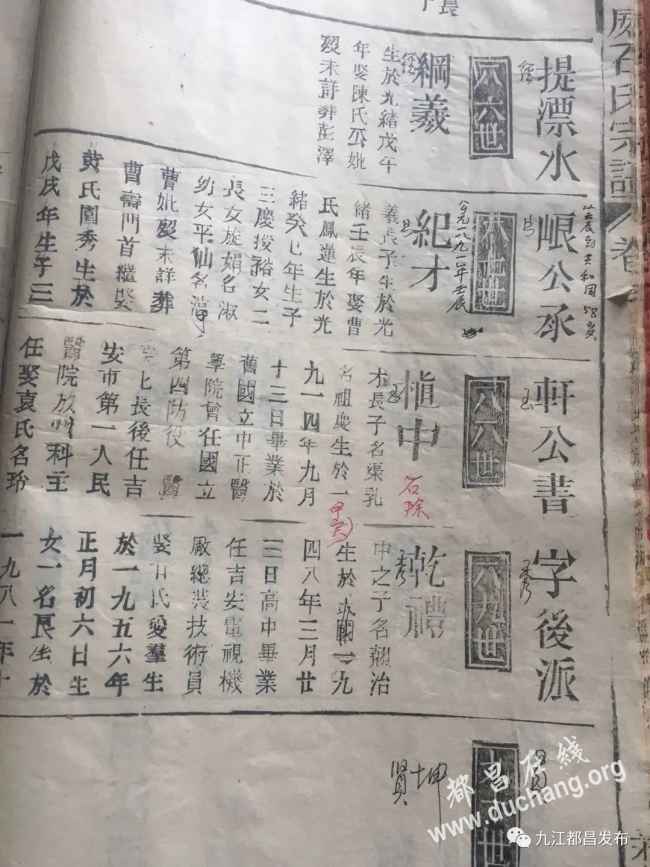 石氏宗譜
卷
提漂水
峴公承
軒公書
字後派
六六世
綱義
生於光緒戊午
年娶陳氏公妣
歿未詳葬彭澤
紀才
義長子生於光
緒壬辰年娶曹
氏鳳蓮生於光
緒癸七年生子
三慶授裕女二
長女旋娟名淑
幼女平仙名
曹妣歿未詳葬
曹壽門首繼娶
黄氏閨秀生於
戊戌年生子三
六八世
慎中
石琛
才長子名渠乳
名祖慶生於一
九一四年九月
十三日畢業於
舊國立中正醫
學院曾任國立
第四防役醫
長後任吉
安市第一人民
醫院放射科主
任娶袁氏名玲
甲寅
六九世
乾禮
中之子名
治
生於
一九
四八年三月廿
三日高中畢業
任吉安電視機
廠總裝技術員
娶甘氏愛羣生
於一九五六年
正月初六日生
女一名
生於
一九八一年十
世
坤
贤
都昌在线
www.duchang.org
九江都昌发布